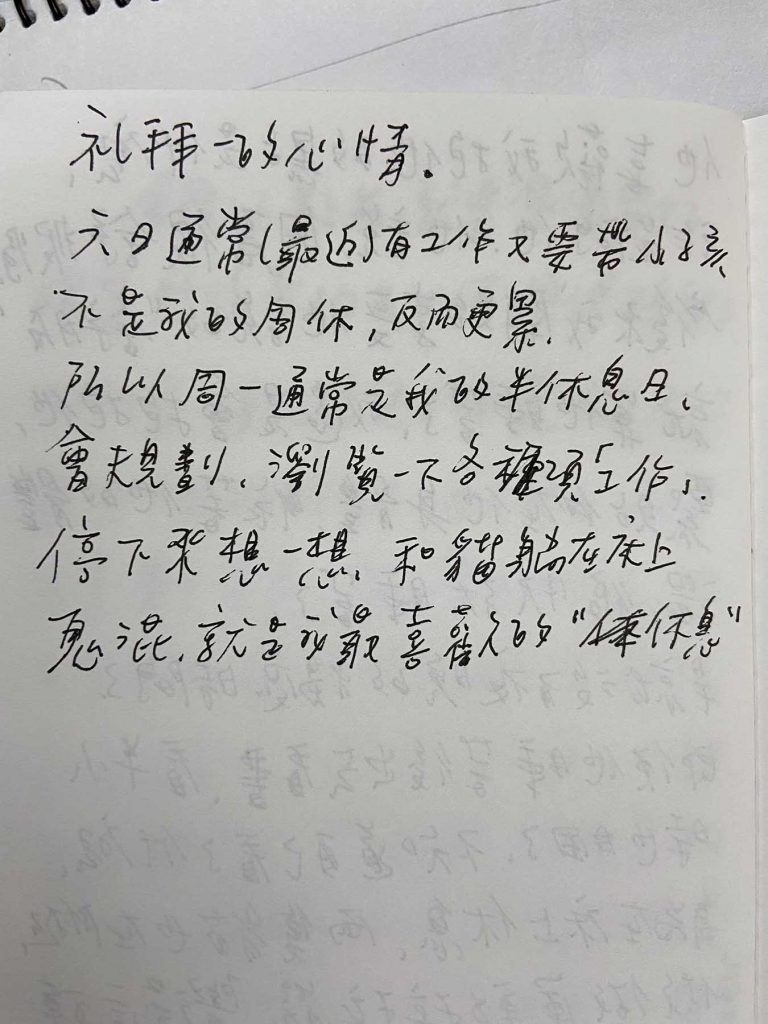 礼拜一的心情。
六日通常(最近)有工作又要帶小孩
不是我的周休,反而更累.
所以周一通常是我的半休息日、
會規劃、瀏覽一下各種項「工作」.
停下來想一想、和貓躺在床上
鬼混.就是我最喜歡的"休息"